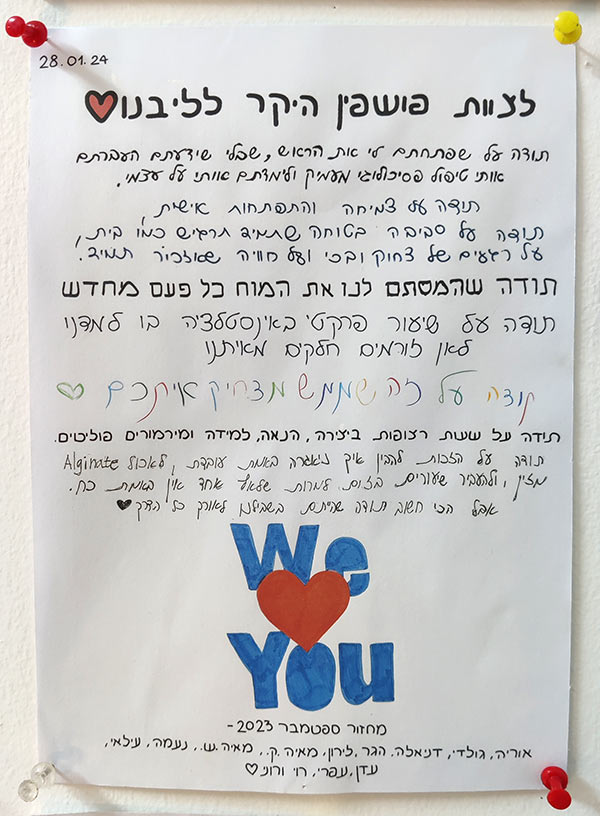 28.01.24
לצוות פושפין היקר לליבנו♥
תודה על שפתחתם לי את הראש, שבלי שידעתם העברתם
אותי טיפול פסיכולוגי מעמיק ולימדתם אותי על עצמי.
תודה על צמיחה והתפתחות אישית,
תודה על סביבה בטוחה שתמיד תרגיש כמו בית,
על רגעים של צחוק ובכי ועל חוויה שאזכור תמיד.
תודה שהמסתם לנו את המוח כל פעם מחדש
תודה על שיעור פרקטי באינסטלציה בו למדנו
לאן זורמים חלקים מאיתנו
תודה על זה שממש מצחיק איתכם ♡
תודה על שעות רצופות ביצירה, הנאה, למידה ומירמורים פוליטים.
תודה על הזכות להבין איך ניאגרה באמת עובדת, לאכול Alginate
מזין, ולהעביר שעורים בזום למרות שלאף אחד אין באמת כח.
אבל הכי חשוב תודה שהייתם בשבילנו לאורך כל הדרך♥
We
You
מחזור ספטמבר 2023 -
אוריה, גולדי, דניאלה, הגר, לירון, מאיה.ק., מאיה.ש., נעמה, עילאי,
עדן, עפרי, רוי ורוני ♡